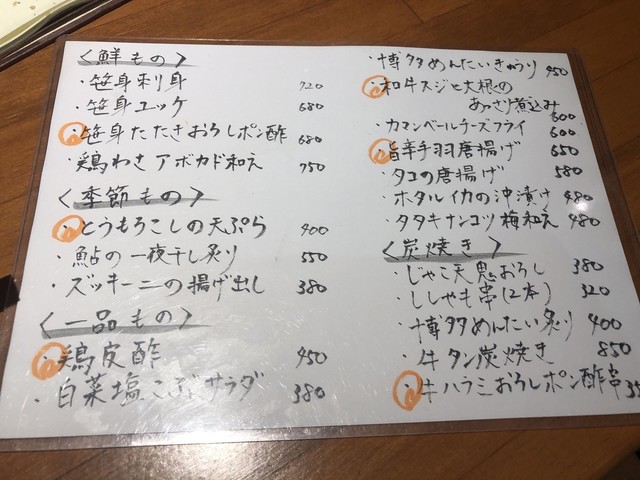 <鮮もの>
・笹身刺身 720
・笹身ユッケ 680
・笹身たたきおろしポン酢 680
・鶏わさアボカド和え 750
<季節もの>
・とうもろこしの天ぷら 400
・鮎の一夜干し炙り 550
・ズッキーニの揚げ出し 380
<一品もの>
・鶏皮酢 450
・白菜塩こぶサラダ 380
・博多めんたいきゅうり 450
・和牛スジと大根の
あっさり煮込み 600
・カマンベールチーズフライ 600
・旨辛手羽唐揚げ 650
・タコの唐揚げ 580
・ホタルイカの沖漬け 480
・タタキナンコツ梅和え 480
<炭焼き>
・じゃこ天鬼おろし 380
・ししゃも串(2本) 320
・博多めんたい炙り 400
・牛タン炭焼き 850
・牛ハラミおろしポン酢串